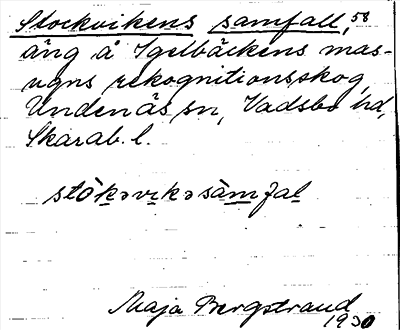 Stockvikens samfall, 58
äng å Igelbäckens mas-
ugns rekognitionsskog,
Undenäs sn, Vadsbo hd,
Skarab. l.
stò̀kəvikəsàmfal
Maja Bergstrand
1930